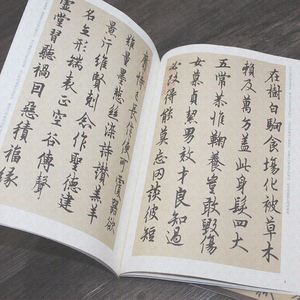 在樹白駒食場化被草木
賴及萬方盖此身髮四大
五常恭惟鞠養豈敢毀傷
女慕貞絜男效才良知過
必改得能莫忘罔談彼短
靡恃己長信使可覆器欲
難量墨悲絲染詩讚羔羊
景行維賢剋念作聖德建
名立形端表正空谷傳聲
虛堂習聽禍因惡積福緣